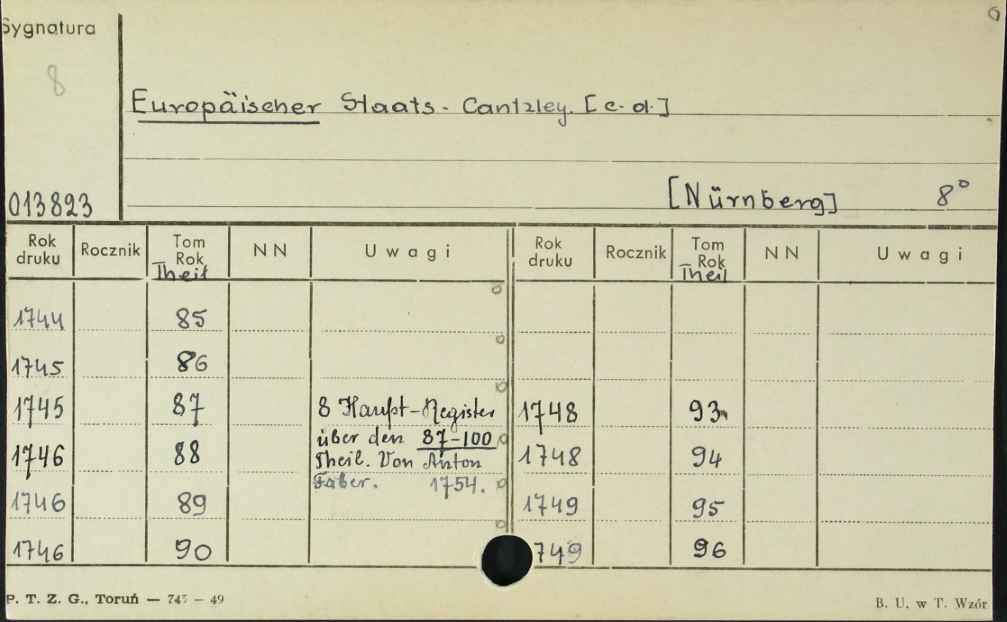 Sygnatura
8
Europäischer Staats-Cantzley. [c.d.]
013823
[Nürnberg] 8°
Rok druku Rocznik Tom Rok Theil NN Uwagi Rok druku Rocznik Tom Rok Theil NN Uwagi
1744 85
1745 86
1745 87 8 Haupt-Register 1748 93
über den 87-100
1746 88 Theil. Von Anton 1748 94
Faber. 1754.
1746 89 1749 95
1746 90 749 96
P. T. Z. G., Toruń — 745 — 49
B. U. w T. Wzór